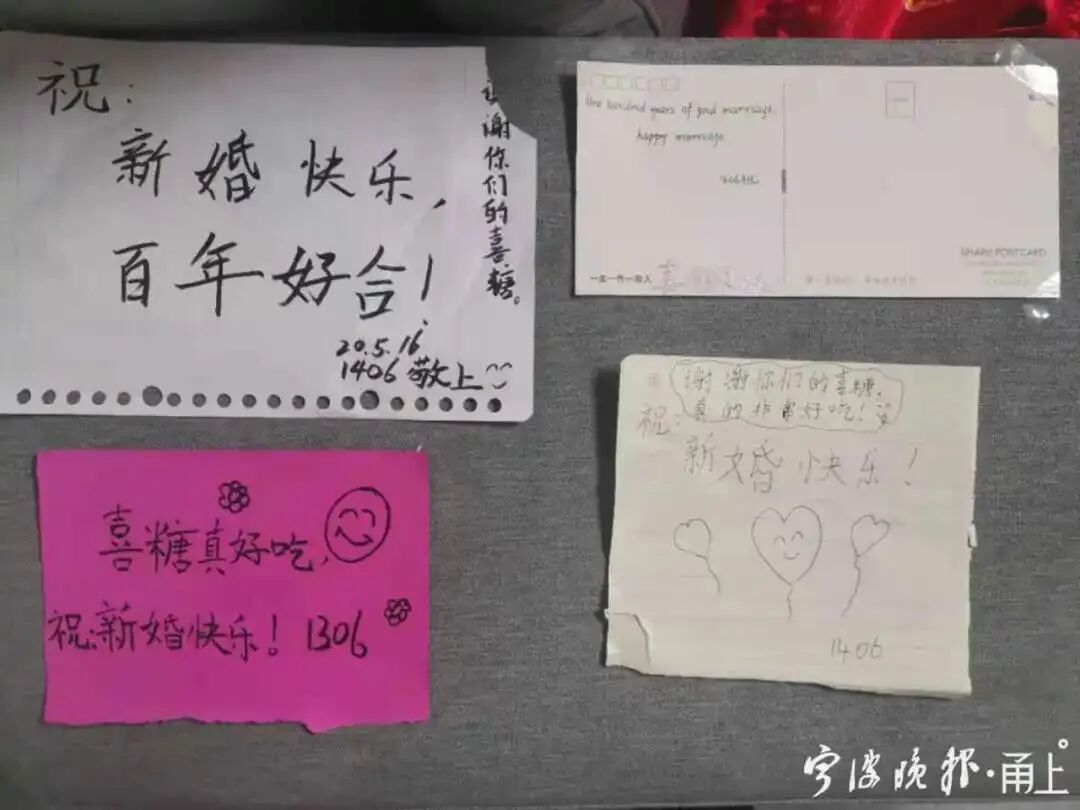 祝:
新婚快乐,
百年好合!
谢你们的喜糖。
20.5.16
1406 敬上
One hundred years of good marriage.
happy marriage.
SHARE POSTCARD
喜糖真好吃,
祝:新婚快乐! 1306
谢谢你们的喜糖,
真的非常好吃!
祝:
新婚快乐!
1406
宁波晚报·甬上